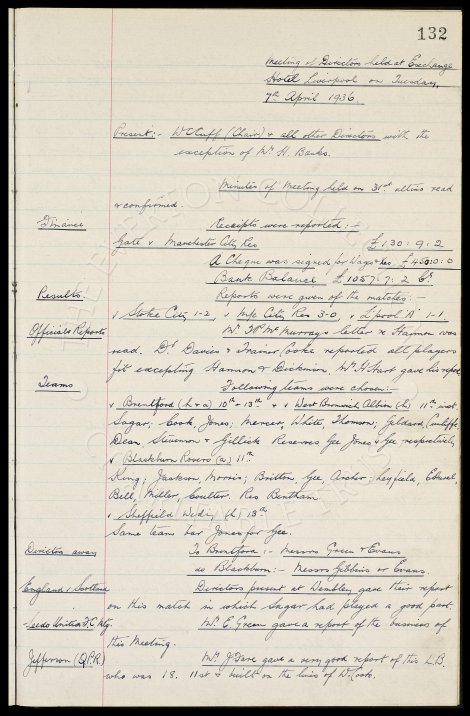 132
Meeting of Directors held at Exchange
Hotel Liverpool on Tuesday,
7th April 1936.
Present:- W C Cuff (Chair) & all other Directors with the
exception of Mr. H. Banks.
Minutes of Meeting held on 31st ultimo read
& confirmed.
Finance
Receipts were reported:-
Gate v Manchester City Res £130:9:2
A Cheque was signed for Wages &c £450:0:0
Bank Balance £1057:7:2
Results.
Reports were given of the matches:-
v Stoke City 1-2, v M/c City Res 3-0, v L'pool 'A' 1-1.
Officials Reports
Mr. McMurray's letter was
read. Dr Davies & Trainer Cooke reported all players
fit excepting & Dickinson. Mr H Hart gave his report
Teams
Following teams were chosen:-
v Brentford (h & a) 10th - 13th & v West Bromwich Albion (h) 11th inst
Sagar; Cook, Jones; Mercer, White, Thomson; Geldard, Cunliffe,
Dean, Stevenson & Gillick Reserves Gee Jones & Gee respectively
v Blackburn Rovers (a) 11th
King; Jackson, Morris; Britton, Gee, Archer; Leyfield,
Bell, Miller, Coulter. Res Bentham.
v Sheffield Wedy (h) 13th
Same team bar Jones for Gee.
Directors away
To Brentford:- Messrs Green & Evans
do Blackburn:- Messrs Gibbins or Evans.
England v Scotland
Directors present at Wembley gave their report
on this match in which Sagar had played a good part.
Leeds United F.C. Mtg
Mr. E. Green gave a report of the business of
this Meeting.
Jefferson (Q.P.R.)
Mr. J Fare gave a very good report of this L.B.
who was 18. 11st & built on the lines of W. Cook.